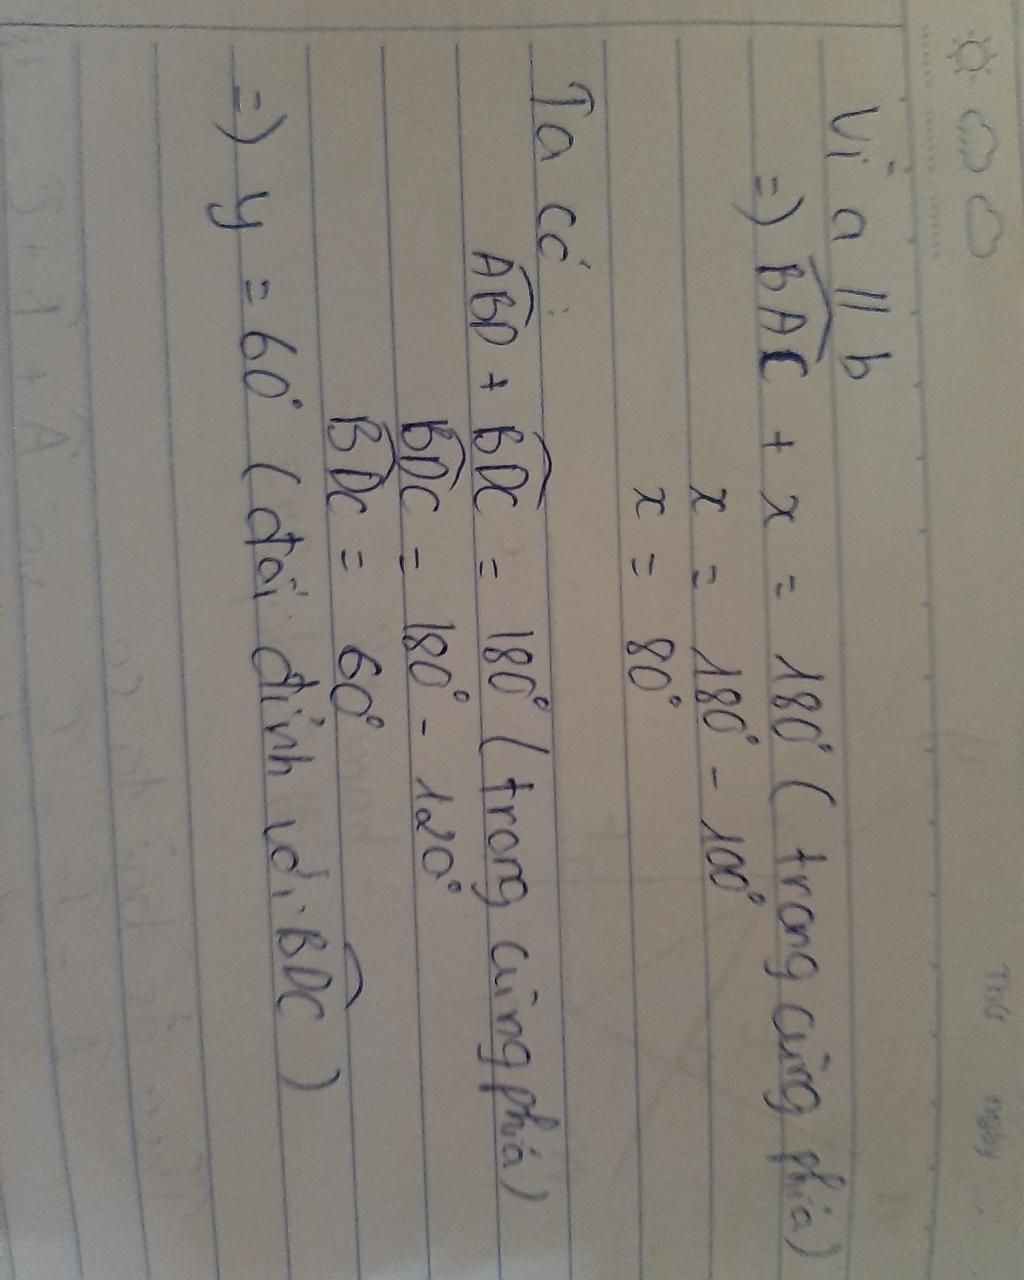 Thứ ngày
Vì a // b
=) BAC + x = 180° ( trong cùng phía)
x = 180° - 100°
x = 80°
Ta có :
ABD + BDC = 180° ( trong cùng phía)
BDC = 180° - 120°
BDC = 60°
=) y = 60° ( đối đỉnh với BDC )